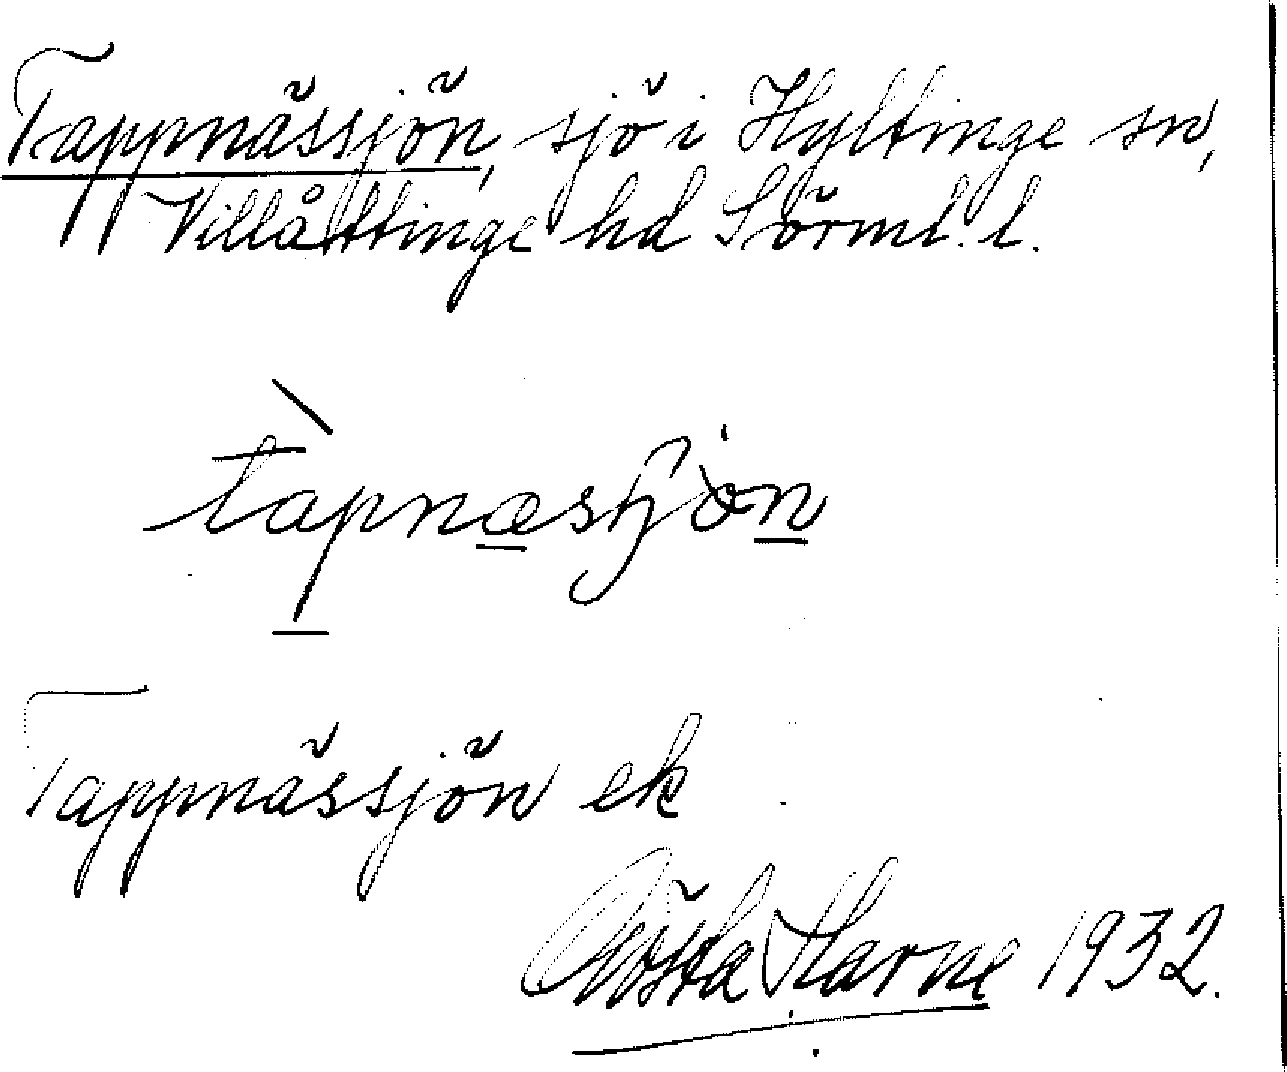 Tappnässjön, sjö i Hyltinge sn,
Villåttinge hd Sörml. l.
tàpnæsjön
Tappnässjön ek
Gösta 1932.